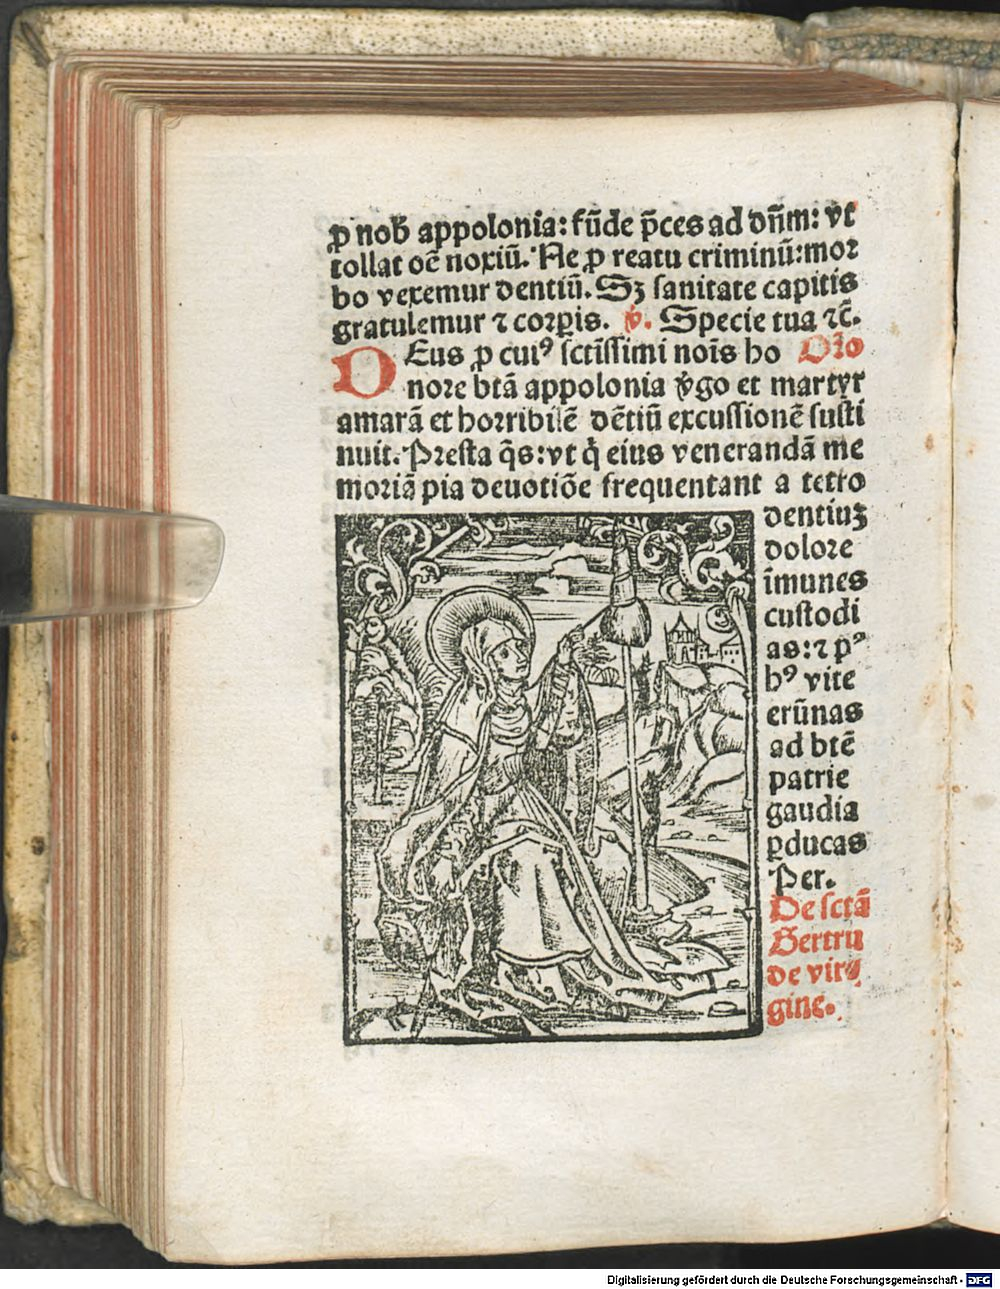 ꝓ nob̃ appolonia: fũde p̃ces ad dñm: vt
tollat oc̃ noxiũ. Ne ꝓ reatu criminũ: moꝛ
bo vexemur dentiũ. Sꝫ sanitate capitis
gratulemur ⁊ coꝛꝑis. ℣. Specie tua ⁊c̃.
DEus ꝓ cuiꝰ sctĩssimi noĩs ho Oꝛ̃o
nore btã appolonia v̓go et martyr
amarã et hoꝛribilẽ dẽtiũ excussionẽ susti
nuit. Pꝛesta q̃s: vt q̇ eius venerandã me
moriã pia deuotiõe frequentant a tetro
dentiuꝫ
doloꝛe
ĩmunes
custodi
as: ⁊ pꝰ
hꝰ vite
erũnas
ad btẽ
patrie
gaudia
ꝑducas
Per.
De sctã
Gertru
de vir⸗
gine.
Digitalisierung gefördert durch die Deutsche Forschungsgemeinschaft - DFG